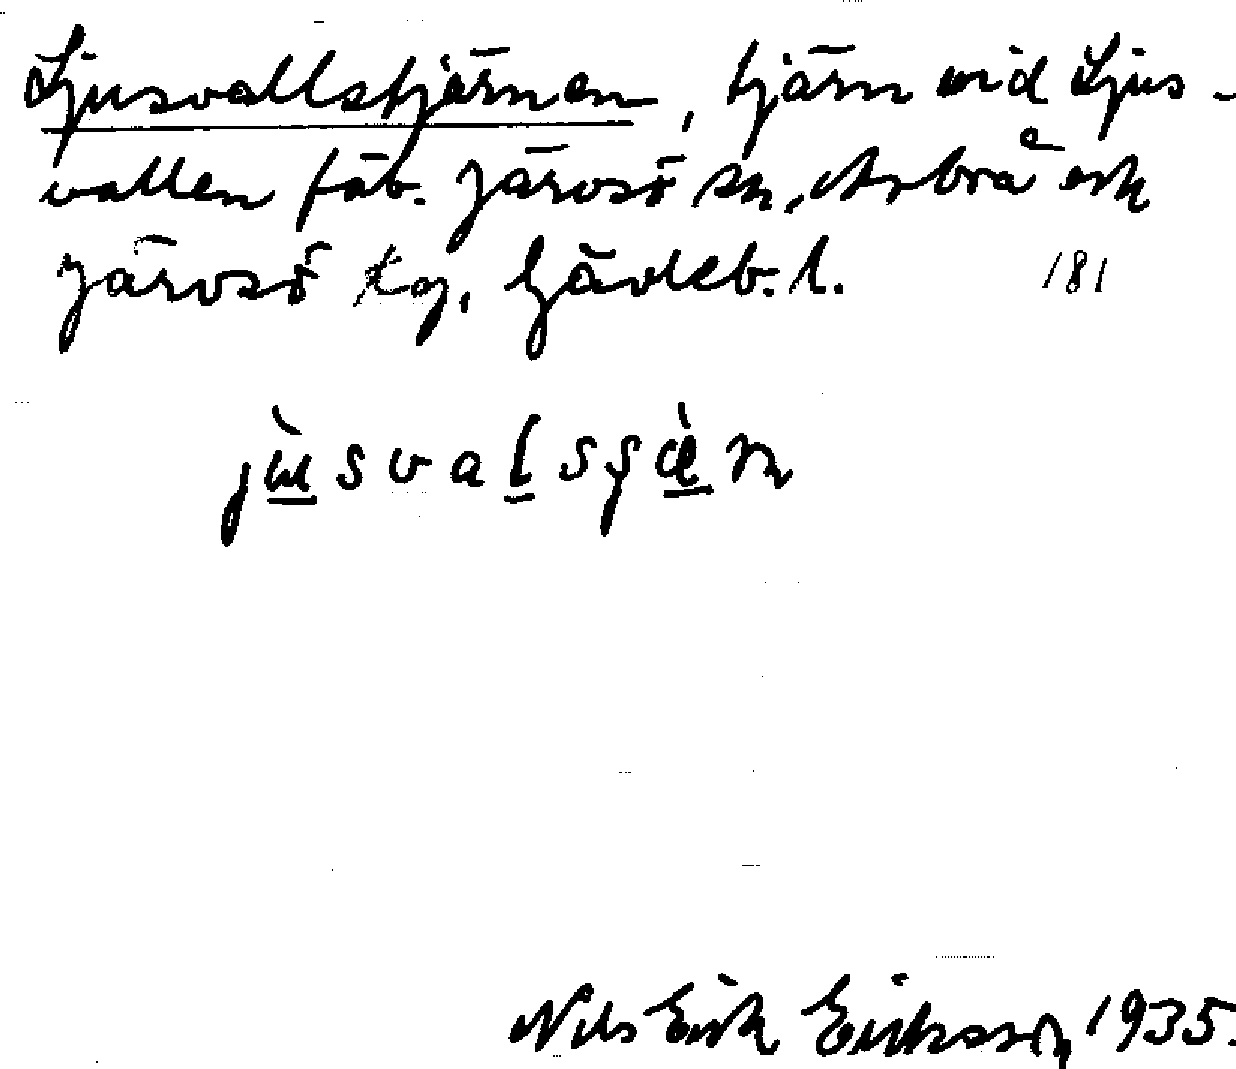 Ljusvallstjärnen, tjärn vid Ljus-
vallen fäb. Järvsö sn, Arbrå och
Järvsö tg, Gävleb. l. 181
jùsvalsjæ̀n
Nils Erik Eriksson 1935.